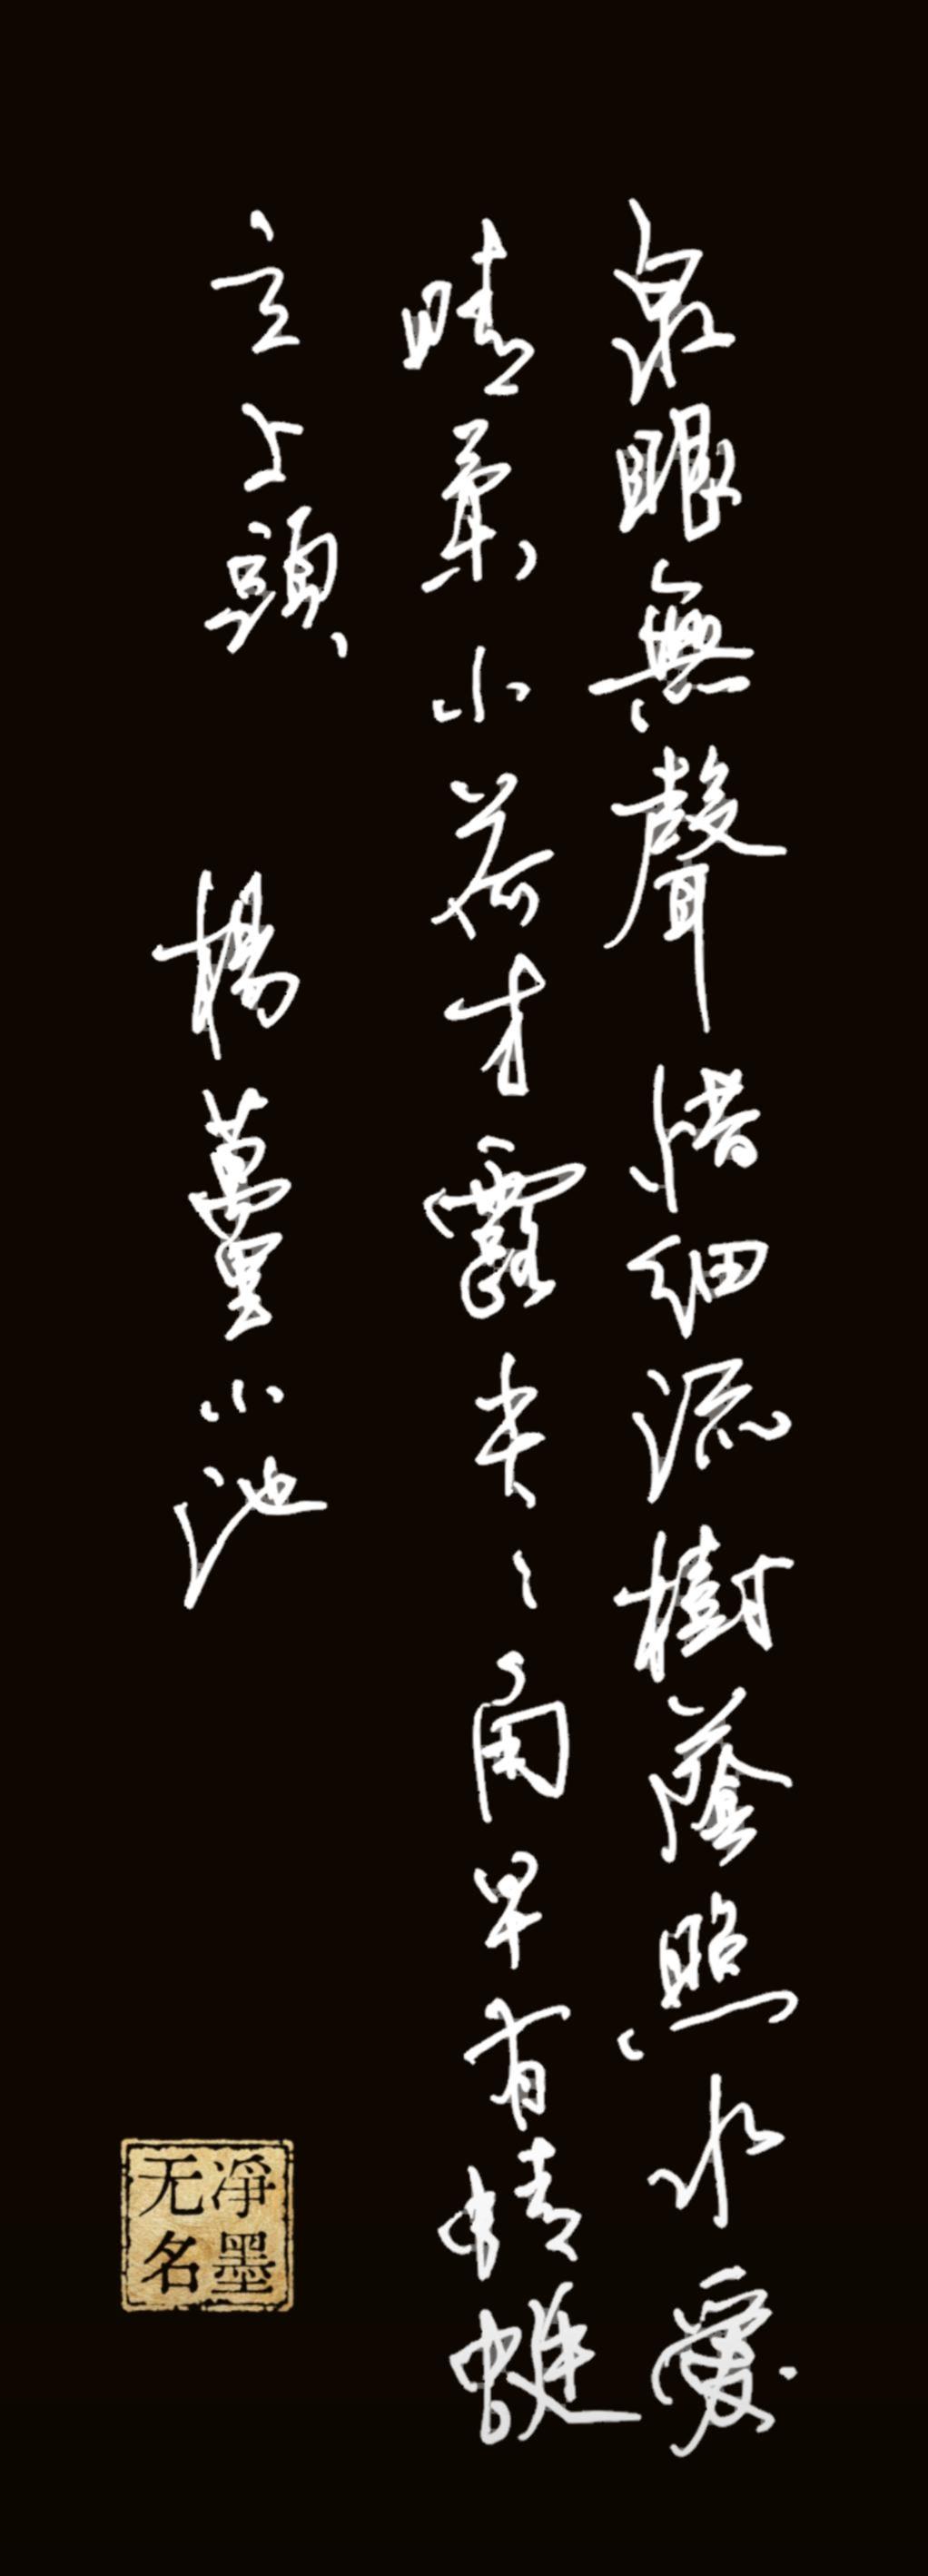 泉眼無聲惜細流樹蔭照水愛
晴柔小荷才露尖〻角早有蜻蜓
立上頭 楊萬里小池
凈墨
无名